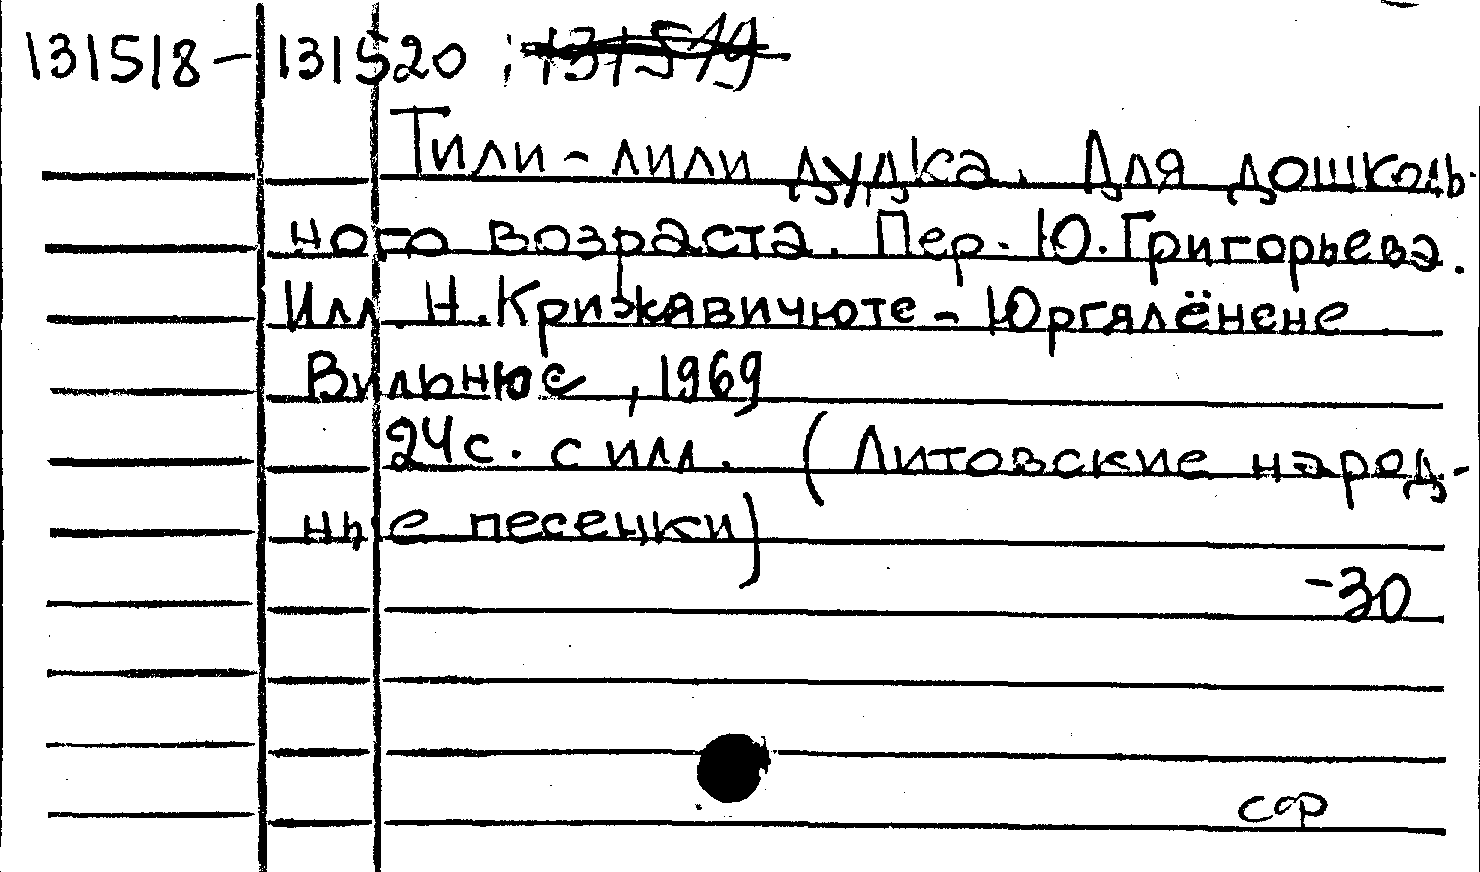 131518-131520 ; 131519
Тили-лили дудка. Для дошколь-
ного возраста. Пер. Ю. Григорьева.
Илл. Н. Крижкавичюте-Юргялёнене
Вильнюс, 1969
24с. с илл. (Литовские народ-
ные песенки)
-30
сор